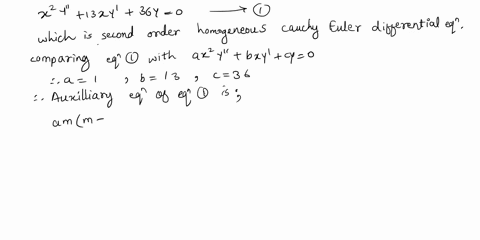 x² y'' + 13xy' + 36y = 0 → ①
which is second order homogeneous cauchy Euler differential eqⁿ.
comparing eqⁿ ① with ax² y'' + bxy' + cy = 0
∴ a = 1 , b = 13 , c = 36
∴ Auxilliary eqⁿ of eqⁿ ① is ;
am(m -